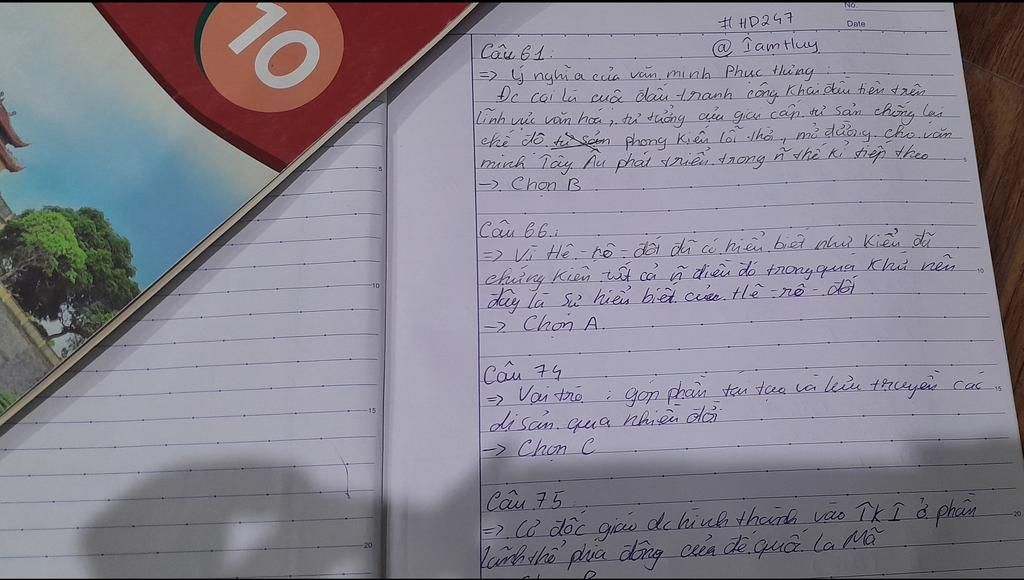 10
No.
Date
#HD247
@Iamthuy
Câu 61:
=> Ý nghĩa của văn minh Phục Hưng:
Đc coi là cuộc đấu tranh công khai đầu tiên trên
lĩnh vực văn hoá, tư tưởng của giai cấp tư sản chống lại
chế độ tư sản phong kiến lỗi thời, mở đường cho văn
minh Tây Âu phát triển trong n~ thế kỉ tiếp theo
-> Chọn B
Câu 66:
=> Vì Hê-rô-đốt đã có hiểu biết như kiểu đã
chứng kiến tất cả n~ điều đó trong quá khứ nên
đây là sự hiểu biết của Hê-rô-đốt
-> Chọn A.
Câu 74
=> Vai trò: góp phần tái tạo và lưu truyền các
di sản qua nhiều đời
-> Chọn C
Câu 75
=> Cơ đốc giáo đc hình thành vào TK I ở phần
lãnh thổ phía đông của đế quốc La Mã
5
10
15
20
5
10
15
20